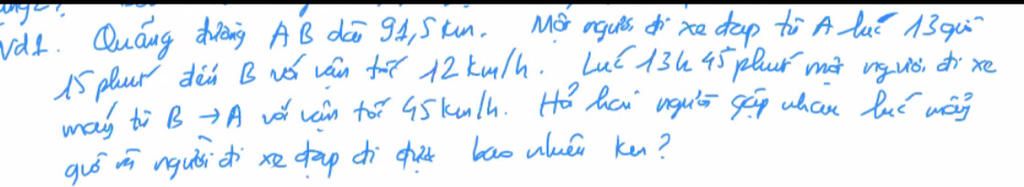 Vd1. Quãng đường AB dài 91,5km. Một người đi xe đạp từ A lúc 13giờ
15phút đến B với vận tốc 12km/h. Lúc 13h45phút một người đi xe
máy từ B → A với vận tốc 45km/h. Hỏi hai người gặp nhau lúc mấy
giờ và người đi xe đạp đi được bao nhiêu km?